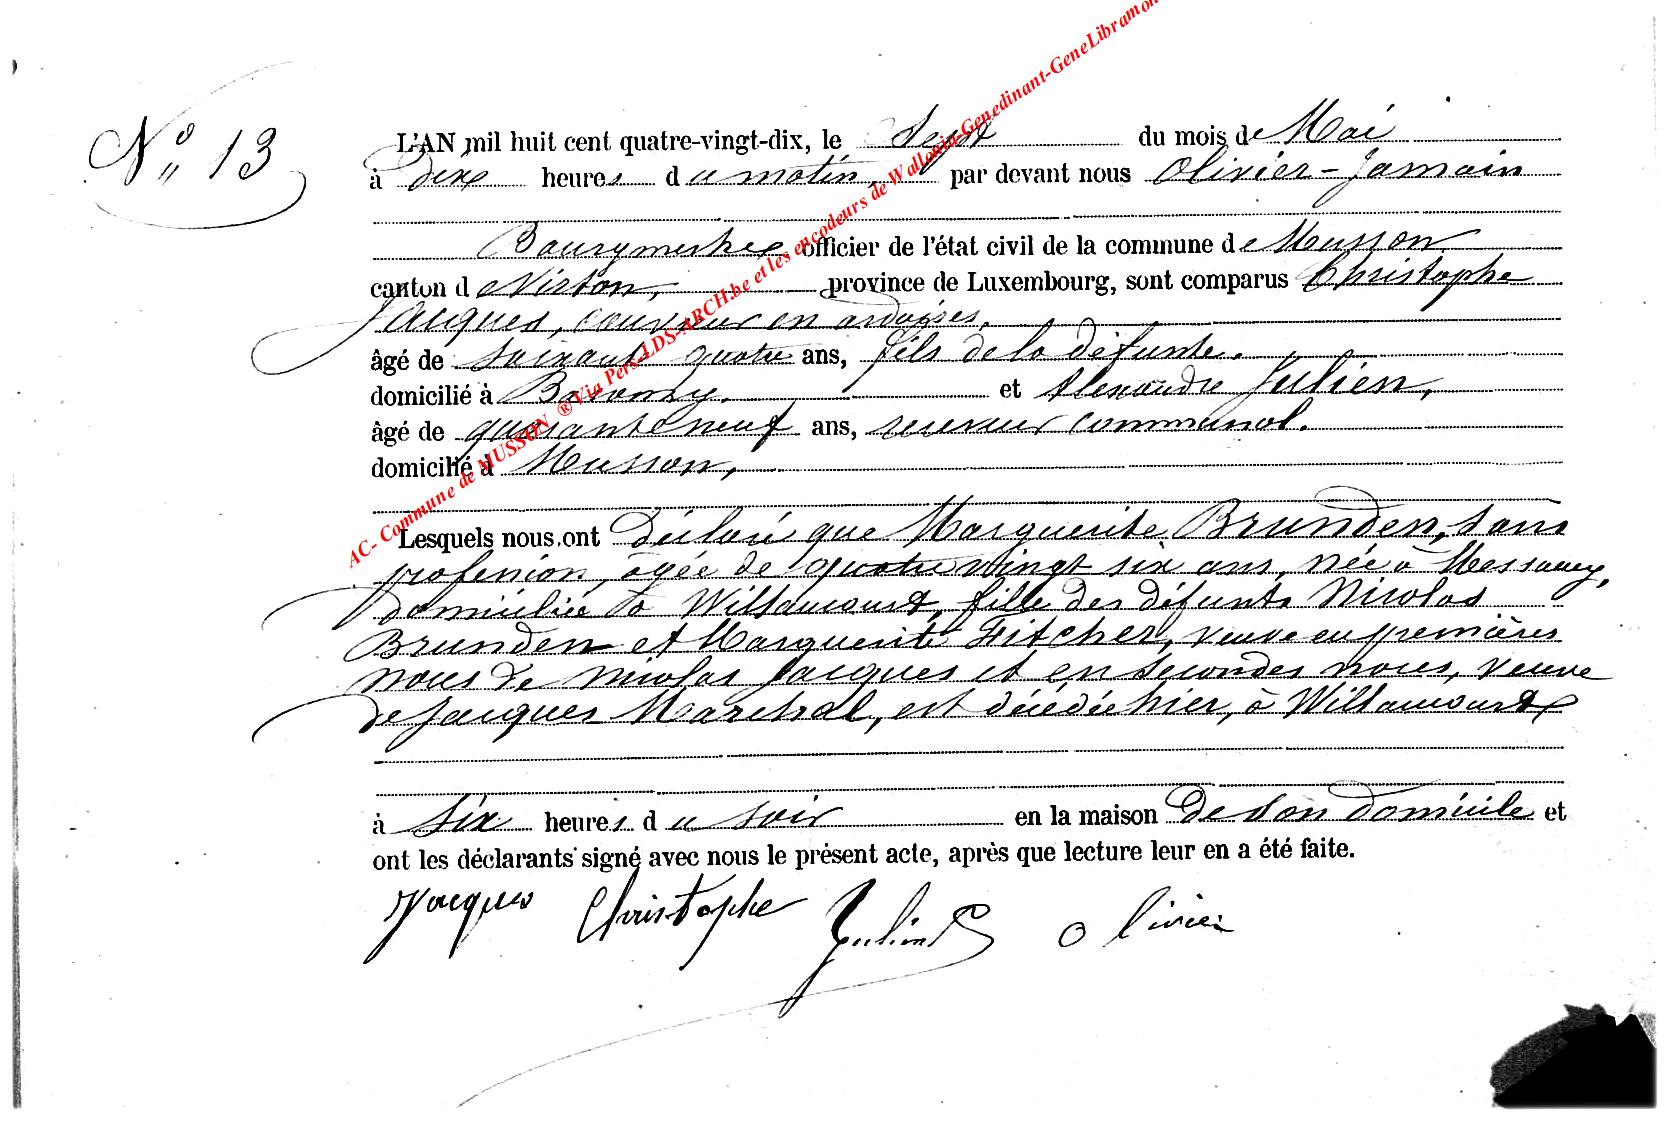 N° 13
L'AN mil huit cent quatre-vingt-dix, le Sept du mois de Mai
à dix heures du matin, par devant nous Olivier-Jamain
Bourgmestre officier de l'état civil de la commune de Musson
canton de Virton, province de Luxembourg, sont comparus Christophe
Jacques, couvreur en ardoises,
âgé de soixante quatre ans, fils de la défunte.
domicilié à Baranzy. et Alexandre Julien,
âgé de quarante neuf ans, receveur communal.
domicilié à Musson,
Lesquels nous ont déclaré que Marguerite Brunden, sans
profession, âgée de quatre vingt six ans, née à Messancy,
domiciliée à Willancourt, fille des défunts Nicolas
Brunden et Marguerite Fitcher, veuve en premières
noces de Nicolas Jacques et en secondes noces, veuve
de Jacques Marchal, est décédée hier, à Willancourt
à six heures du soir en la maison de son domicile et
ont les déclarants signé avec nous le présent acte, après que lecture leur en a été faite.
Jacques Christophe Julien Olivier
AC- Commune de MUSSON ® Via Pers-LDS-ARCH.be et les encodeurs de Wallonia-Genedinant-GeneLibramon